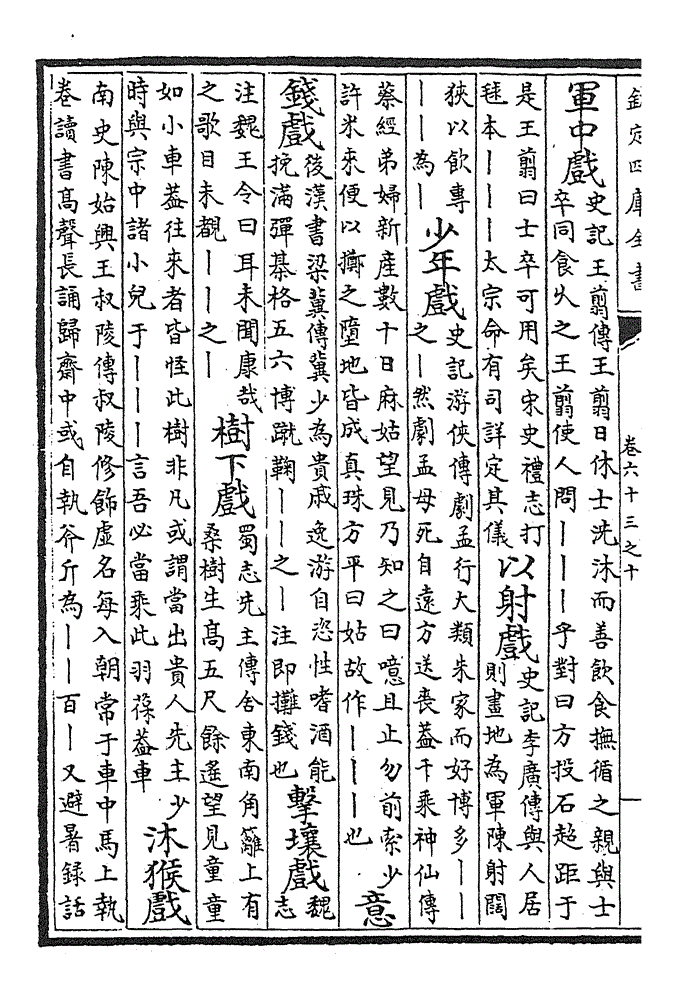 欽定四庫全書 卷六十三之十
軍中戲 史記王翦傳王翦日休士洗沐而善飲食撫循之親與士
卒同食久之王翦使人問丨丨丨乎對曰方投石超距于
是王翦曰士卒可用矣宋史禮志打
毬本丨丨丨太宗命有司詳定其儀
以射戲 史記李廣傳與人居
則畫地為軍陳射闊
狹以飲專
丨丨為丨
少年戲 史記游俠傳劇孟行大類朱家而好博多丨丨
之丨然劇孟母死自遠方送喪蓋千乘神仙傳
蔡經弟婦新產數十日麻姑望見乃知之曰噫且止勿前索少
許米來便以擲之墮地皆成真珠方平曰姑故作丨丨丨也
意
錢戲 後漢書梁冀傳冀少為貴戚逸游自恣性嗜酒能
挽滿彈棊格五六博蹴鞠丨丨之丨注即攤錢也
擊壤戲 魏
志
注魏王令曰耳未聞康哉
之歌目未覩丨丨之丨
樹下戲 蜀志先主傳舍東南角籬上有
桑樹生高五尺餘遙望見童童
如小車蓋往來者皆怪此樹非凡或謂當出貴人先主少
時與宗中諸小兒于丨丨丨言吾必當乘此羽葆蓋車
沐猴戲
南史陳始興王叔陵傳叔陵修飾虛名每入朝常于車中馬上執
卷讀書高聲長誦歸齋中或自執斧斤為丨丨百丨又避暑錄話